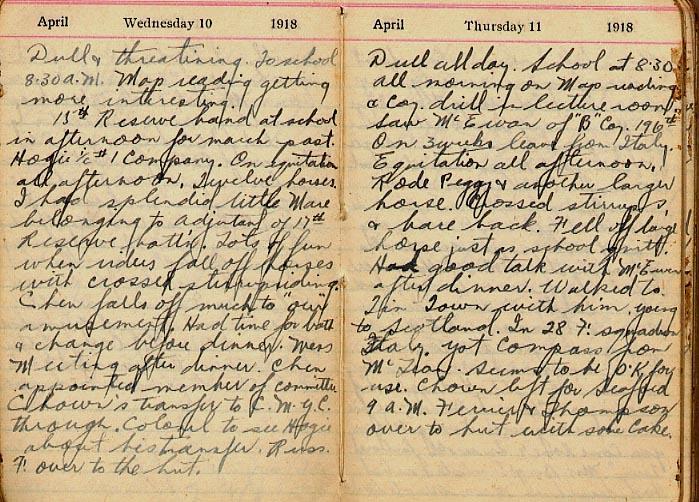 April Wednesday 10 1918
Dull & threatining. To school
8:30 A.M. Map reading getting
more interesting.
15th Reserve band at school
in afternoon for march past.
Hogie i/c #1 Company. On equitation
all afternoon. Twelve horses.
I had splendid little Mare
belonging to Adjutant of 17th
Reserve batt'n. Lots of fun
when riders fall off horses
with crossed stirrup riding.
Chen falls off much to "our"
amusement. Had time for bath
& change before dinner. Mess
Meeting after dinner. Chen
appointed member of committee
Chown's transfer to C.M.G.C.
through. Colonel to see Hogie
about his transfer. Russ.
F. over to the hut.
April Thursday 11 1918
Dull all day. School at 8:30
all morning on Map reading
& Coy. drill in lecture room.
Saw McEwan of "B" Coy. 196th
On 3 weeks leave from Italy.
Equitation all afternoon.
Rode Peggy & another larger
horse. Crossed stirrups
& bare back. Fell off large
horse just as school quits.
Had good talk with McEwan
after dinner. Walked to
in Town with him. going
to Scotland. In 28 F. squadron
Italy. Got Compass from
Mc Seems to be O.K. for
use. Chown left for Seaford
9 A.M. Ferrier & Thompson
over to hut with some Cake.